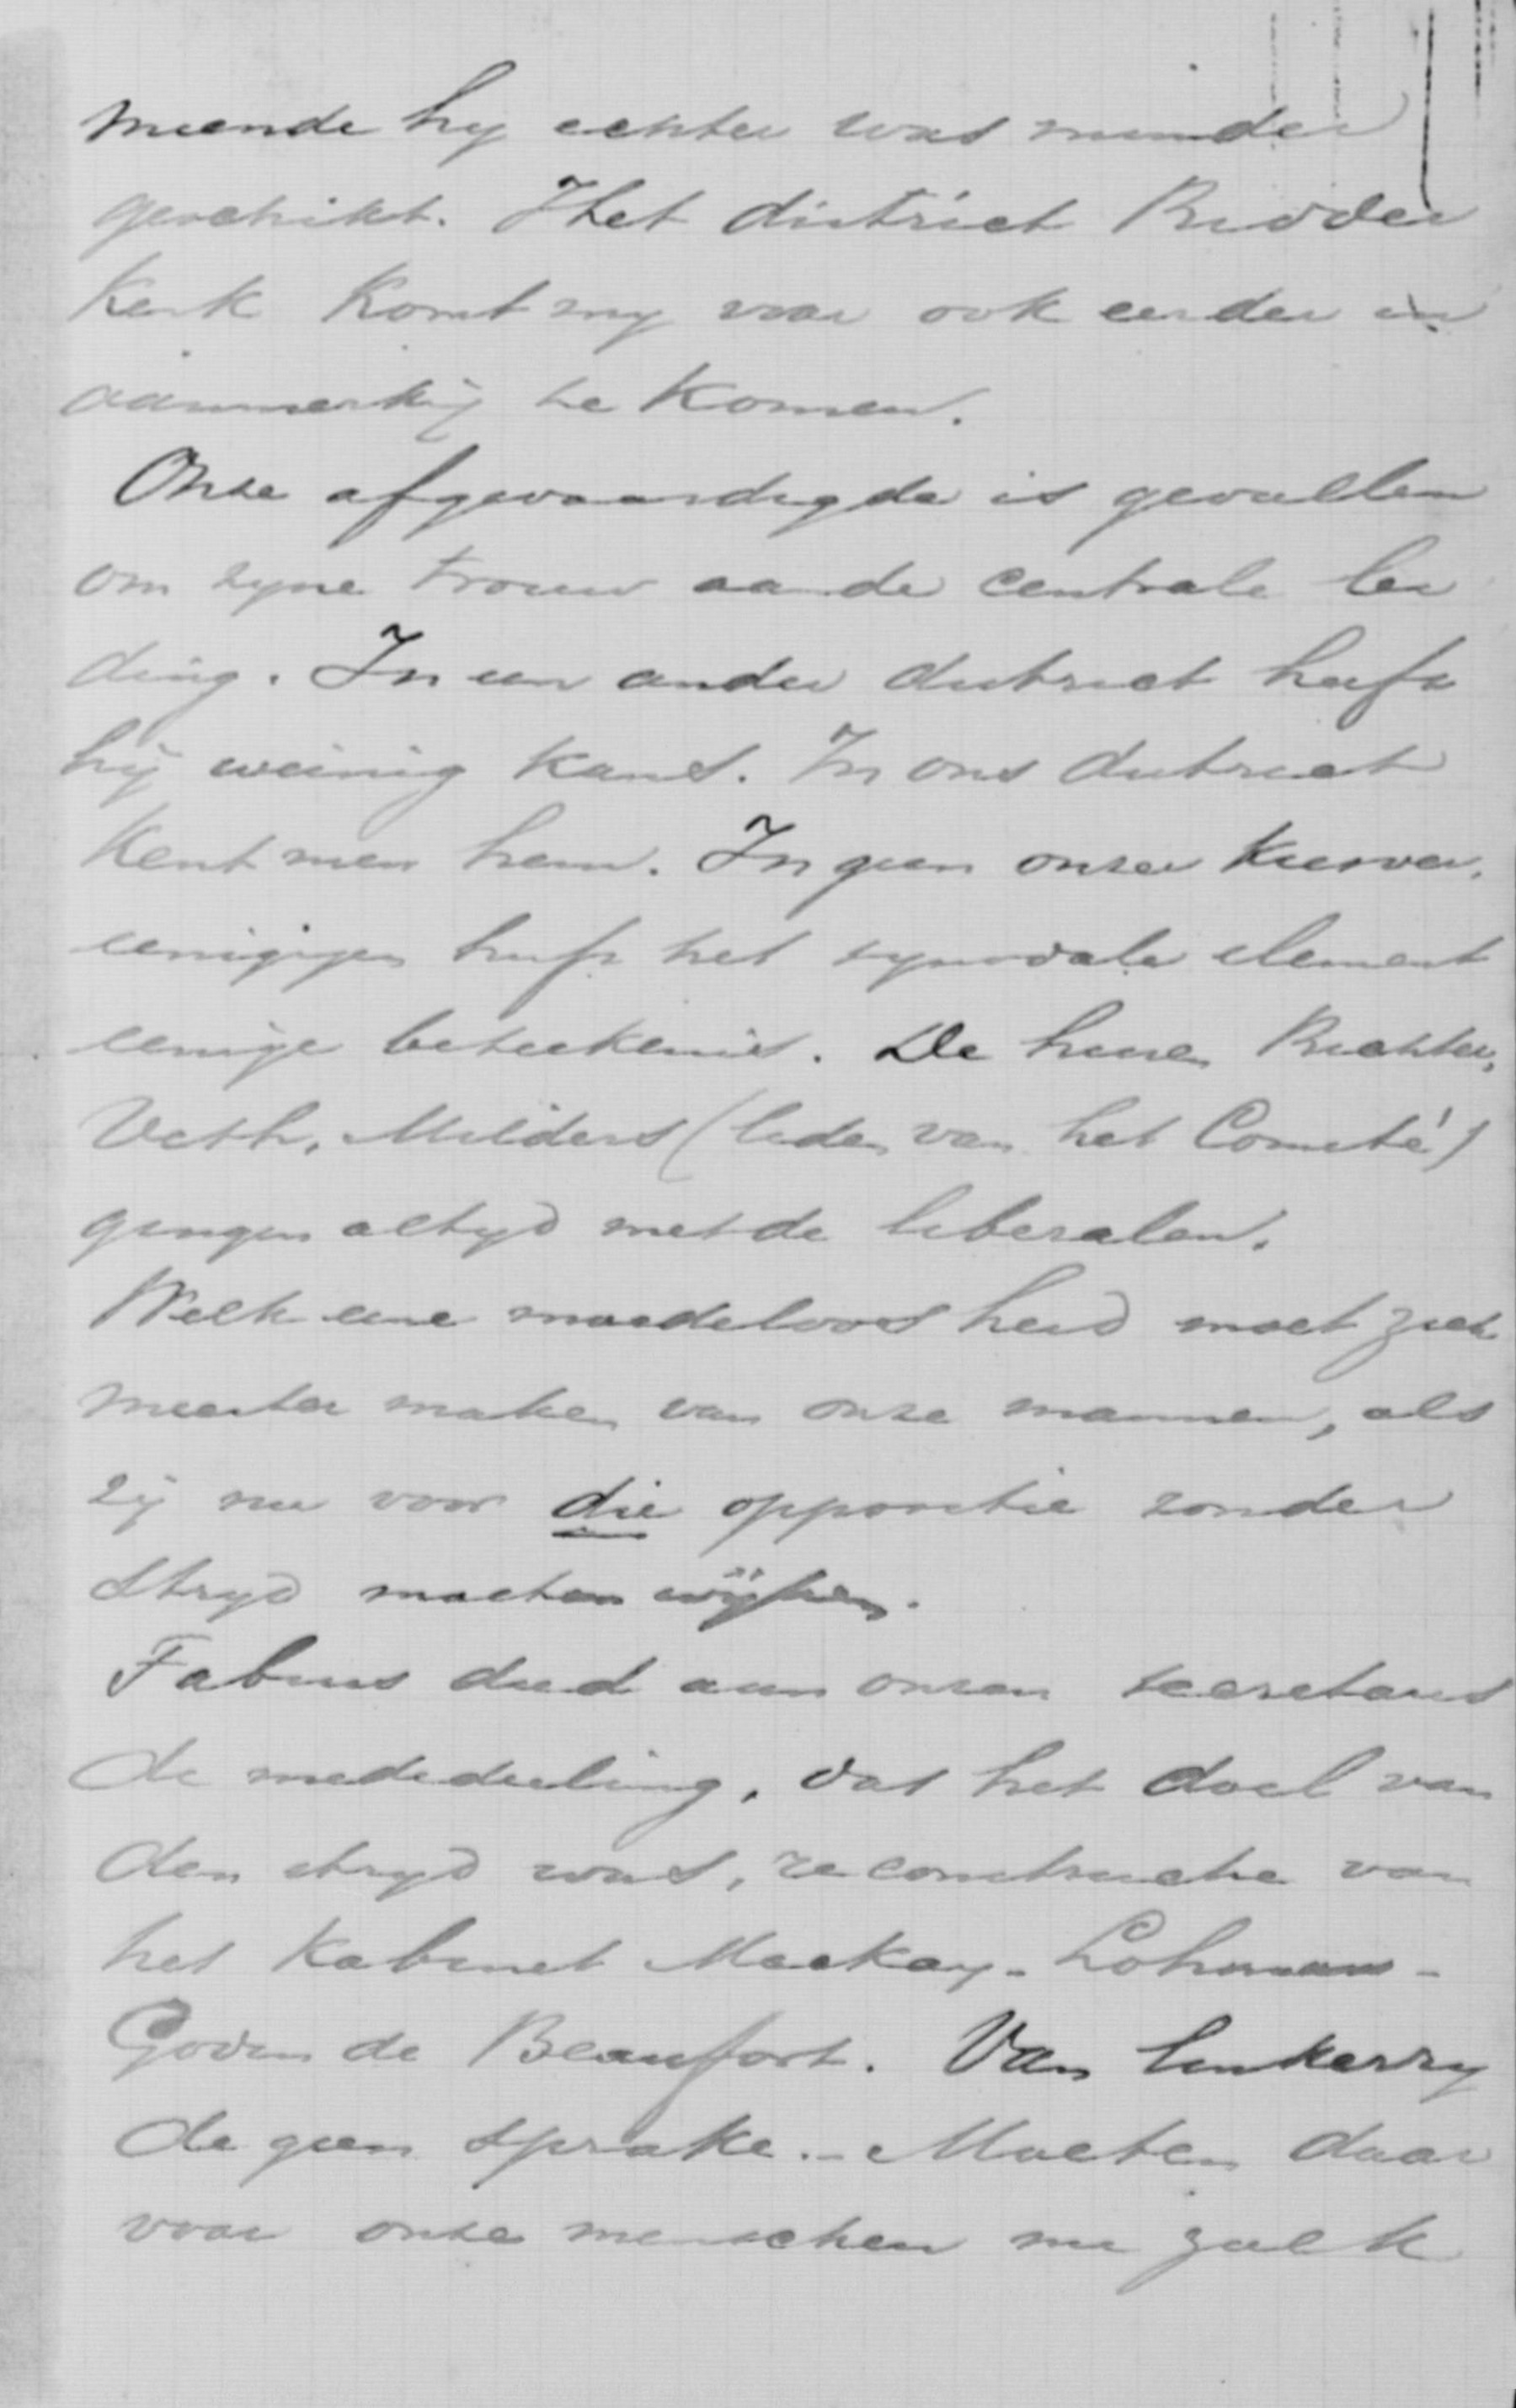 meende hy echter was minder
geschikt. Het district Ridder
kerk komt my voor ook eerder in
aanmerkig te komen.
Onze afgevaardigde is gevallen
om zyne trouw aan de centrale lei
ding. In een ander district heeft
hij weinig kans. In ons district
kent men hem. In geen onzer kiesver.
eenigigen heeft het synodale element
eenige beteekenis. De heeren Richter,
Veth, Milders (leden van het Comité)
gingen altyd met de liberalen.
Welk eene moedeloosheid moet zich
meester maken van onze mannen, als
zij nu voor die oppositie zonder
stryd moeten wijken.
Fabius deed aan onzen secretaris
de mededeeling, dat het doel van
den stryd was, reconstructie van
het Kabinet Mackay - Lohman -
Godin de Beaufort. Van linkerzy
de geen sprake. - Moeten daar
voor onze menschen nu zulk